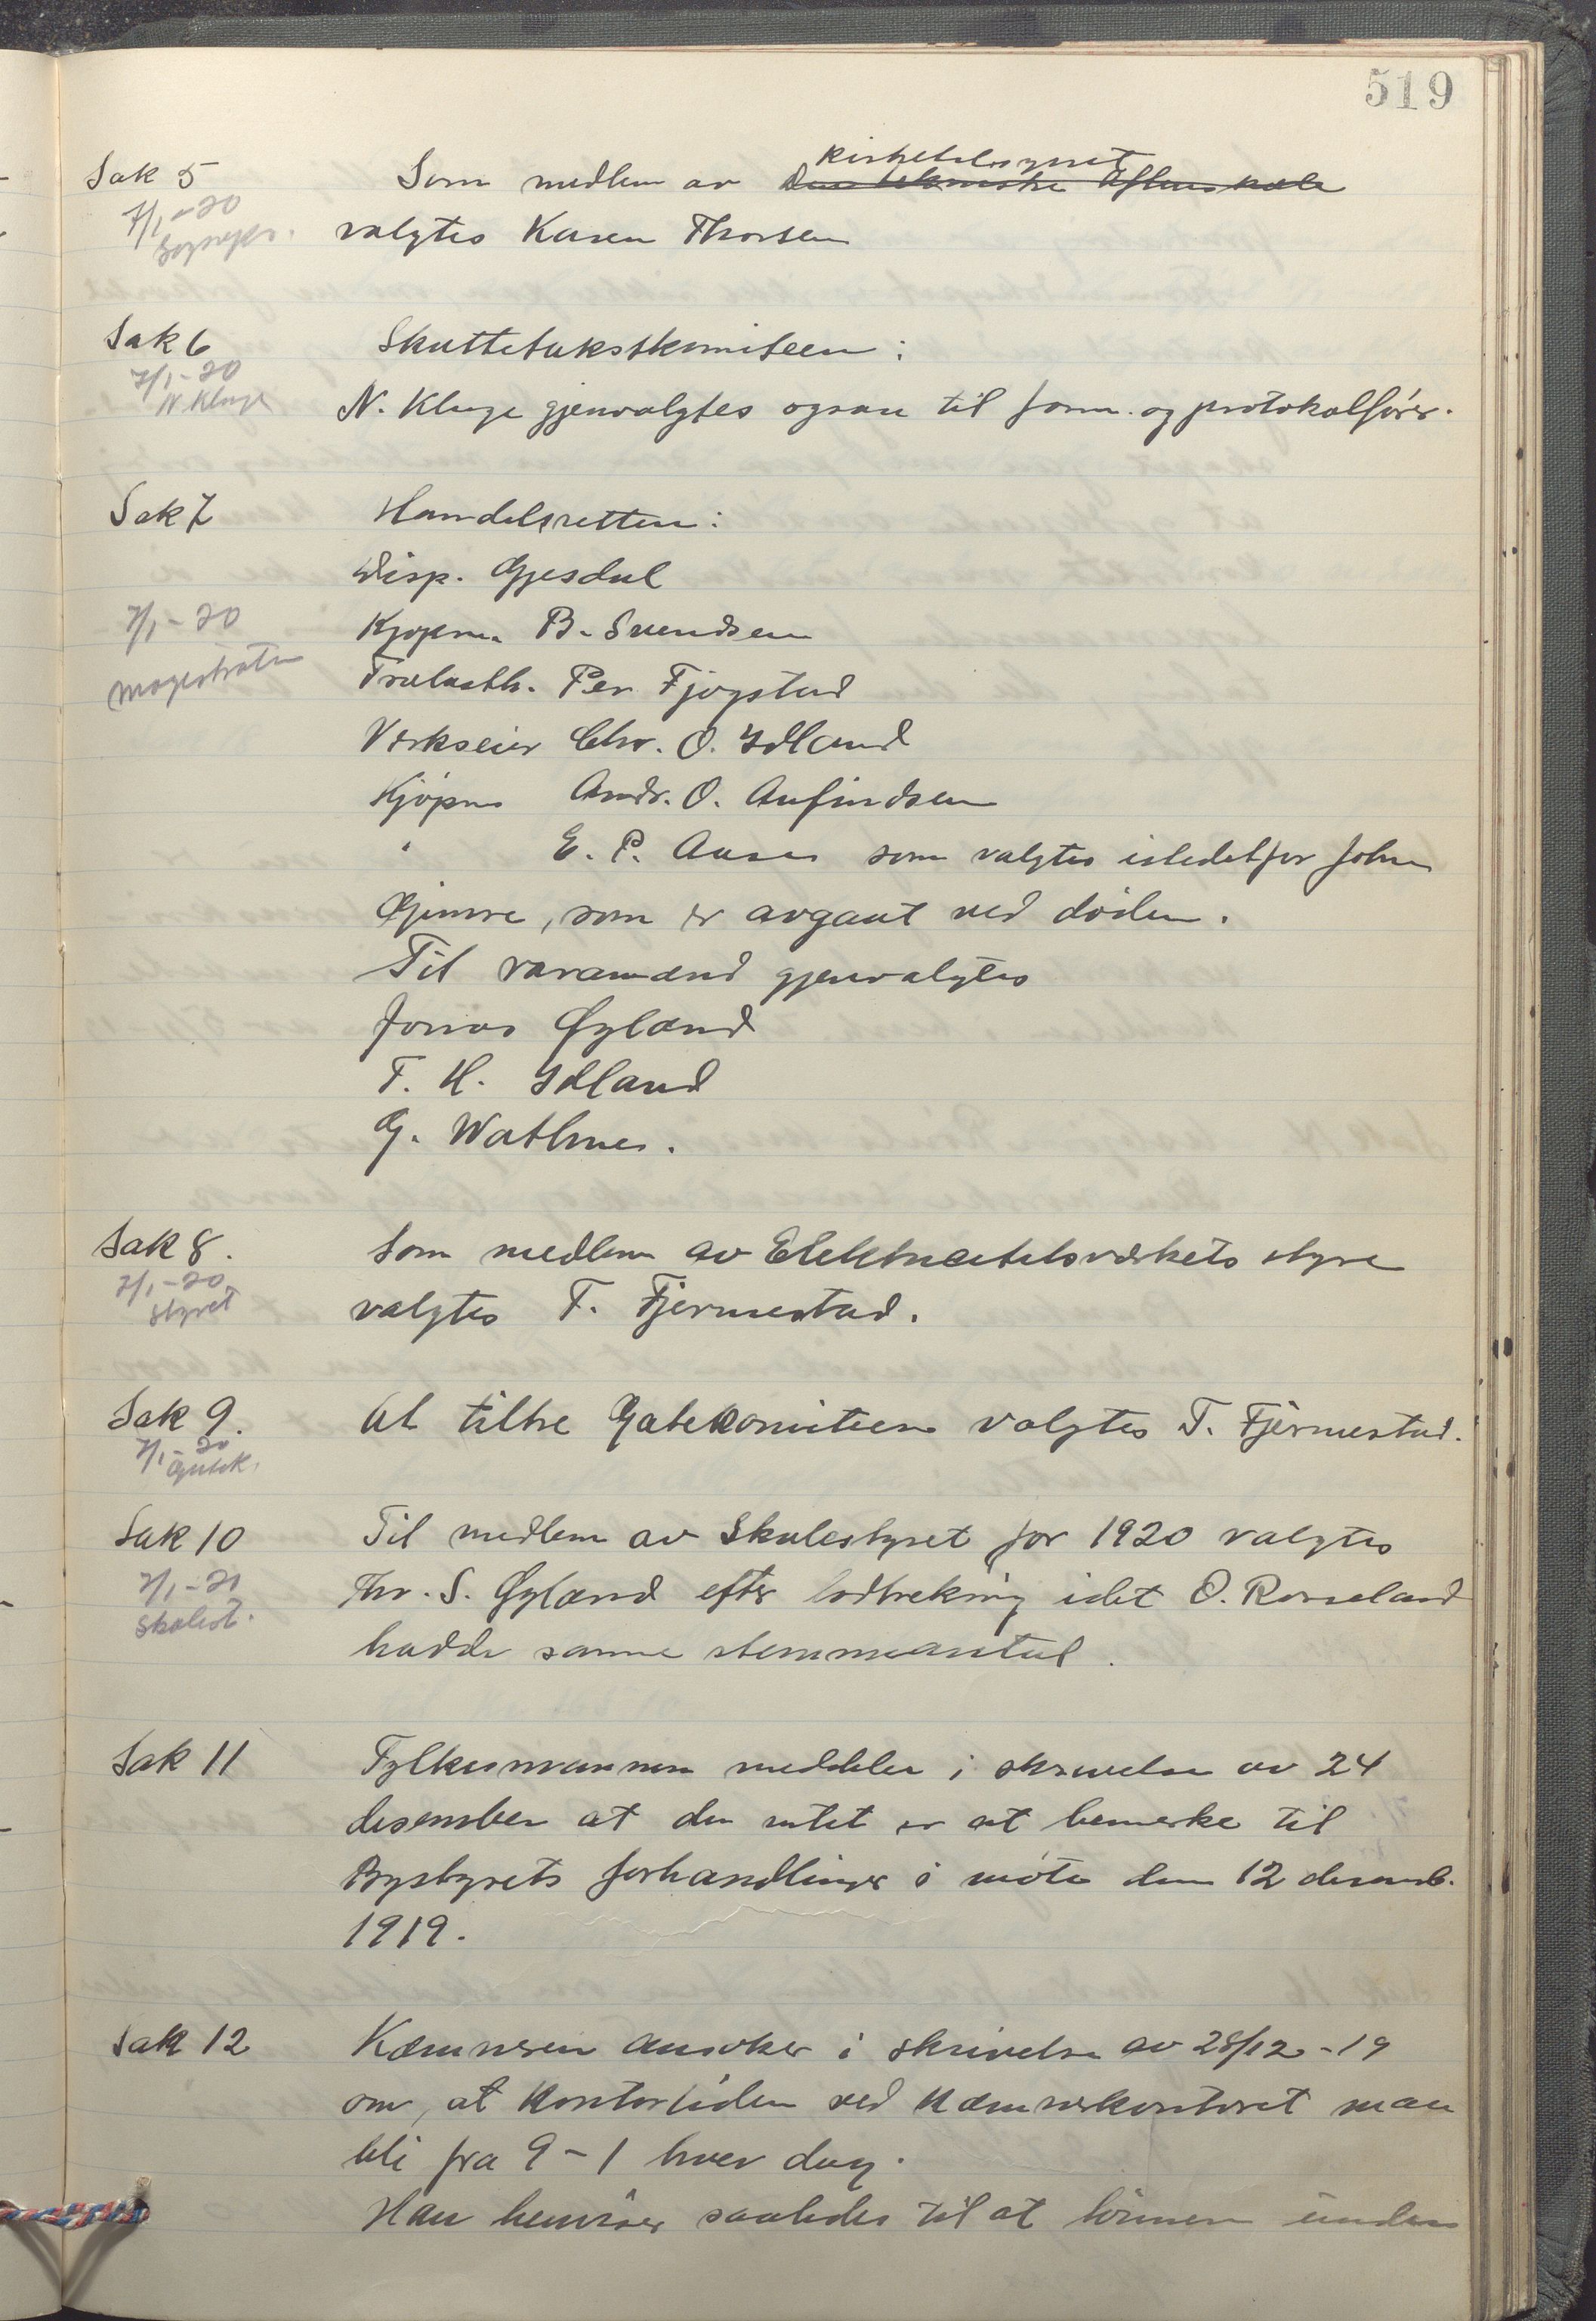 519
Sak 5
kirketilsynet
Som medlem av Den tekniske Aftenskole
7/1-20
Sogneprs.
valgtes Karen Thorsen
Sak 6
Skattetakstkomiteen:
7/1-20
N Kluge
N. Kluge gjenvalgtes ogsaa til form. og protokolfører.
Sak 7
Handelsretten:
Disp. Gjesdal
7/1-20
Kjøpm. B. Svendsen
magistraten
Trælasth. Per Fjogstad
Verkseier Chr. O. Idland
Kjøpm Andr. O. Anfindsen
" E. P. Aase som valgtes istedetfor John
Gjimre, som er avgaat ved døden.
Til varamænd gjenvalgtes
Jonas Øgland
T. H. Idland
G. Wathne.
Sak 8.
Som medlem av Elektricitetsværkets styre
7/1-20
styret
valgtes T. Fjermestad.
Sak 9.
At tiltre Gatekomiteen valgtes T. Fjermestad.
7/1-20
Gatek.
Sak 10
Til medlem av Skolestyret for 1920 valgtes
7/1-20
Skolest.
Thv. S. Øgland efter lodtrekning idet O. Rosseland
hadde samme stemmeantal.
Sak 11
Fylkesmannen meddeler i skrivelse av 24
desember at der intet er at bemerke til
Bystyrets forhandlinger i møte den 12 desemb.
1919.
Sak 12
Kæmneren ansøker i skrivelse av 28/12-19
om, at kontortiden ved Kæmnerkontoret maa
bli fra 9-1 hver dag.
Han henviser saaledes til at lønnen under